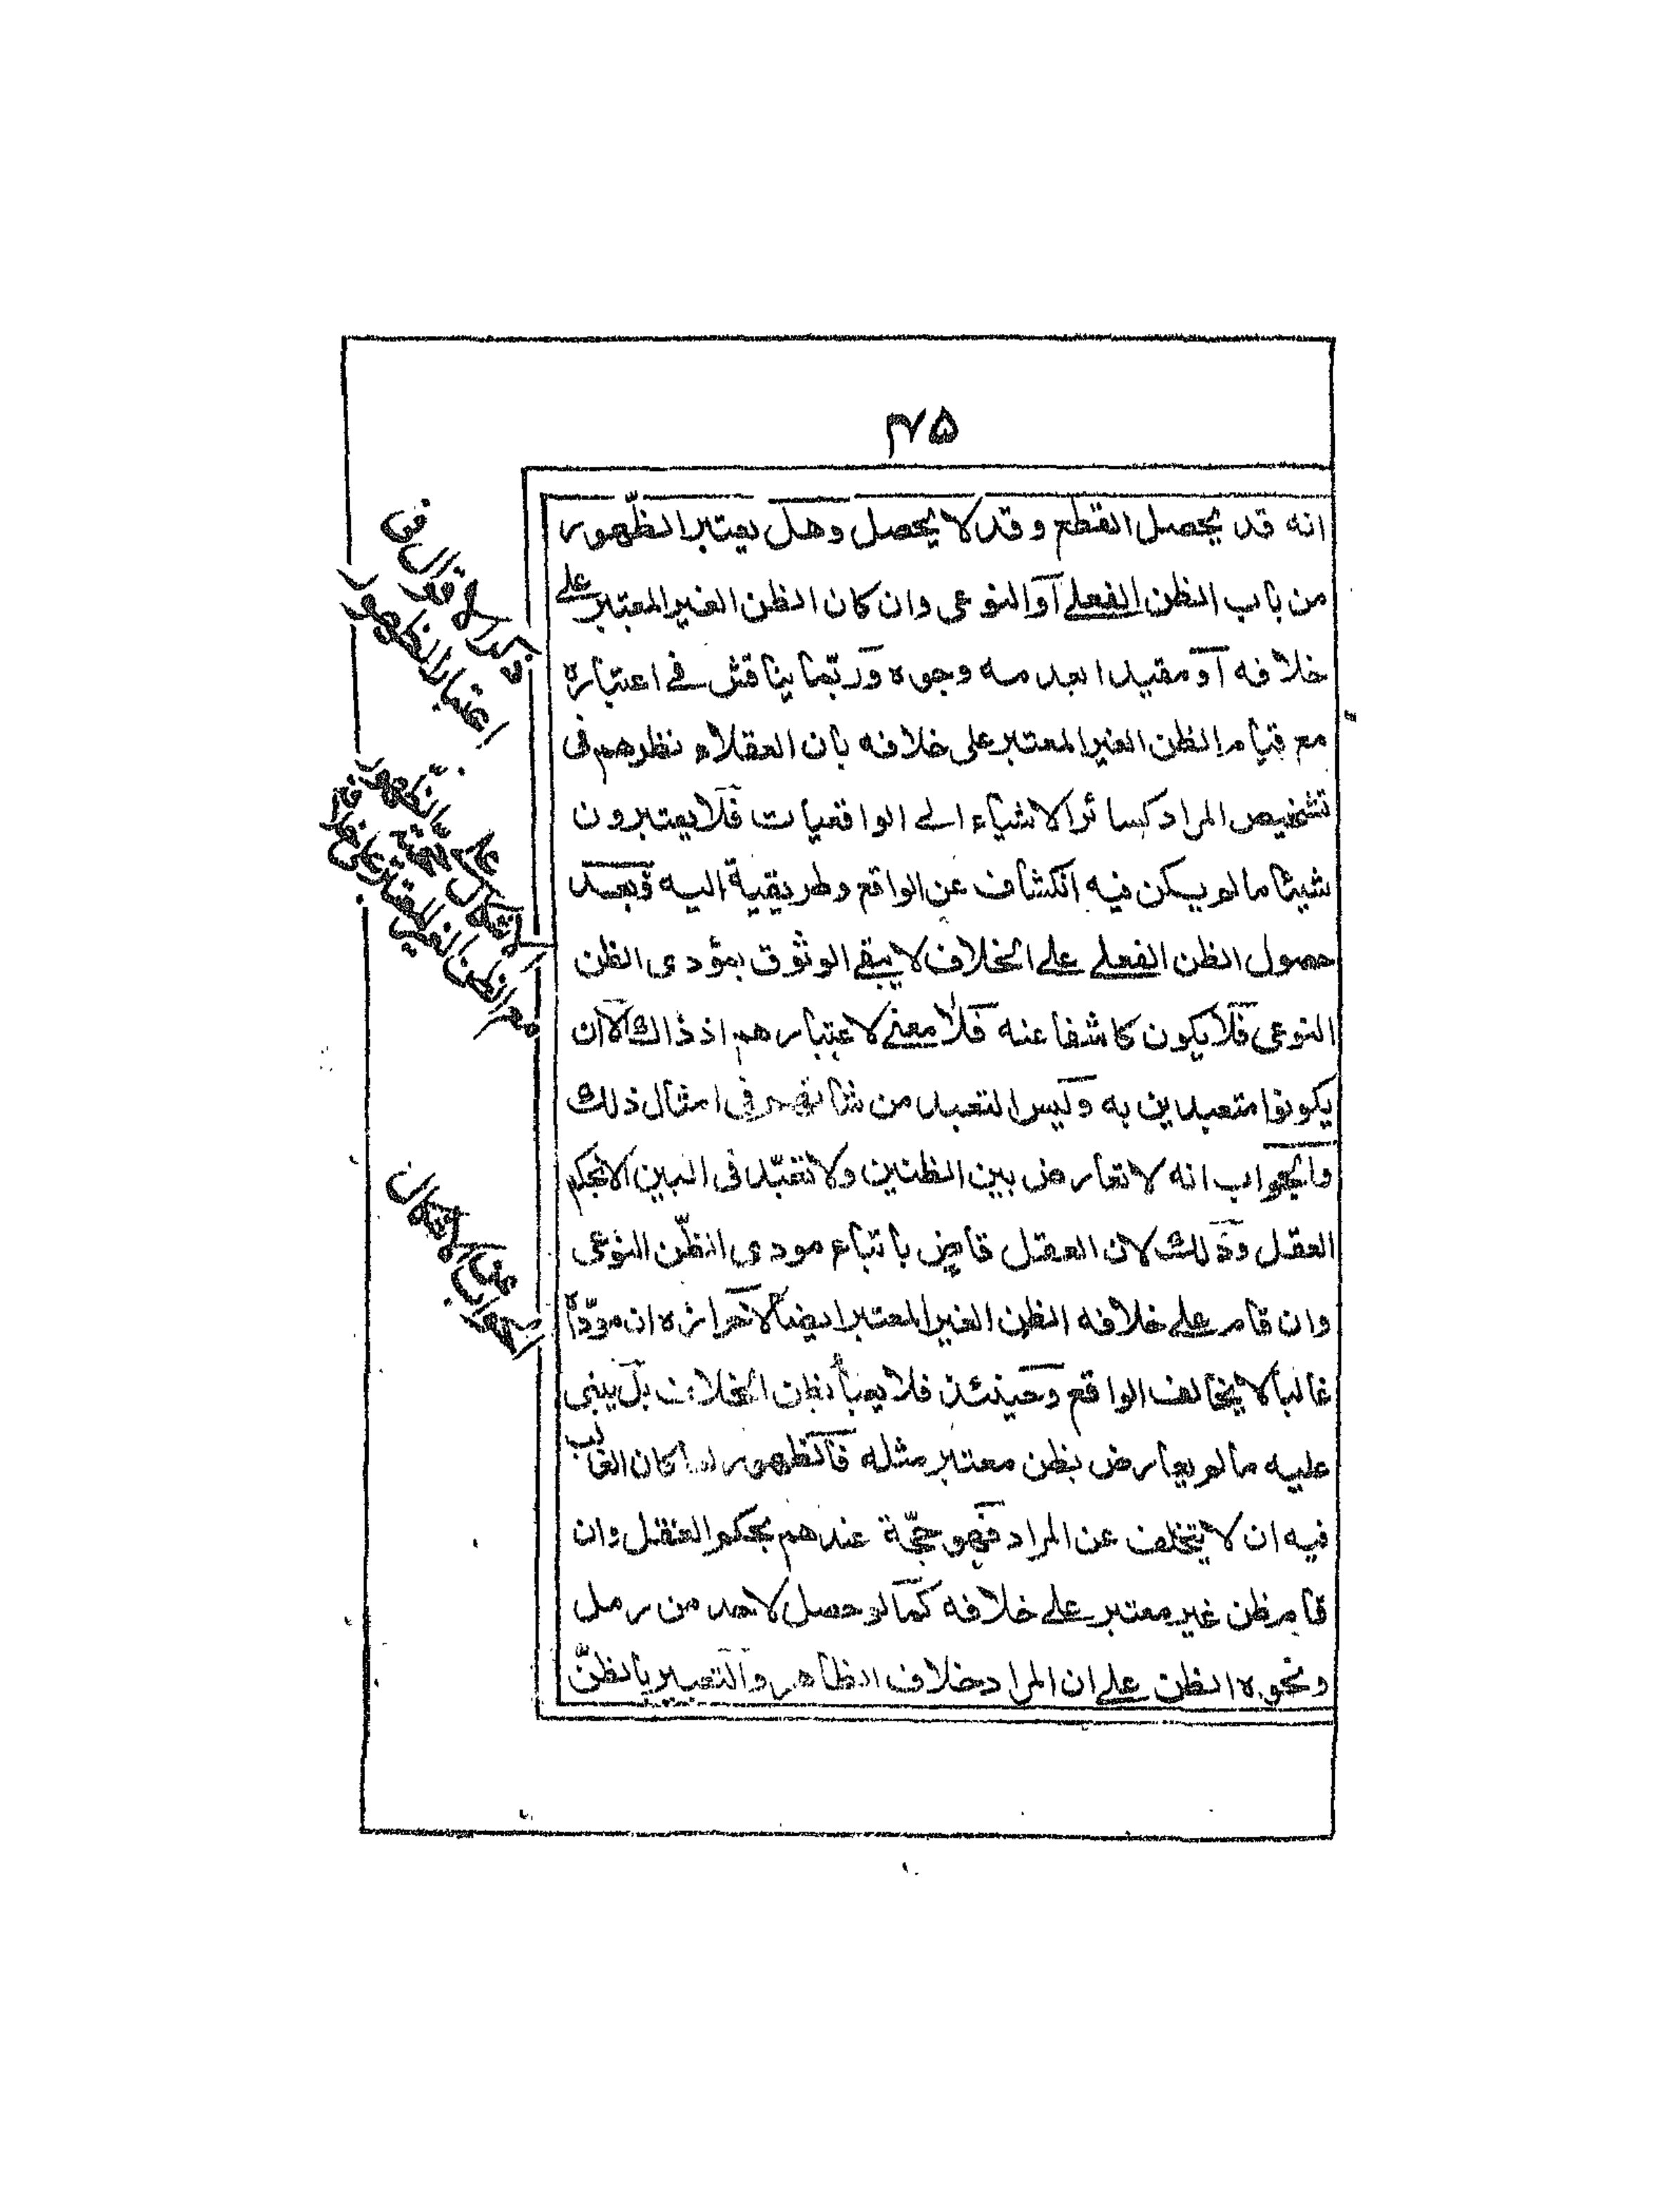 ۴۵
انه قد يحصل القطع وقد لا يحصل وهل يعتبر الظّهور
من باب الظن الفعلے آو النوعى وان كان الظن الغير المعتبر علے
خلافه آو مقيدا بعدمه وجوه وربّما يناقش فے اعتباره
مع قيام الظن الغير المعتبر على خلافه بان العقلاء نظرهم فى
تشخيص المراد كسائر الاشياء الے الواقعيات فلا يعتبرون
شيئا ما لم يكن فيه انكشاف عن الواقع وطريقية اليه وبعد
حصول الظن الفعلے علے الخلاف لا يبقے الوثوق بمؤدى الظن
النوعى فلا يكون كاشفا عنه فلا معنے لاعتبارهم اذ ذاك الا ان
يكونوا متعبدين به وليس التعبد من شانهم فى امثال ذلك
والجواب انه لا تعارض بين الظنين ولا تعبّد فى البين الا بحكم
العقل وذلك لان العقل قاضٍ باتباع مودى الظّن النوعى
وان قام علے خلافه الظن الغير المعتبر ايضا لاحرازه ان مودّاه
غالبا لا يخالف الواقع وحينئذ فلا يعبأ بظن الخلاف بل يبنى
عليه ما لم يعارض بظن معتبر مثله فالظهور لما كان الغالب
فيه ان لا يتخلف عن المراد فهو حجّة عندهم بحكم العقل وان
قام ظن غير معتبر علے خلافه كما لو حصل لاحد من رمل
ونحوه الظن علے ان المراد خلاف الظاهر والتعبير بالظنّ
اعتبار الظهور
مع الظن الغير المعتبر
الجواب عن الاشكال